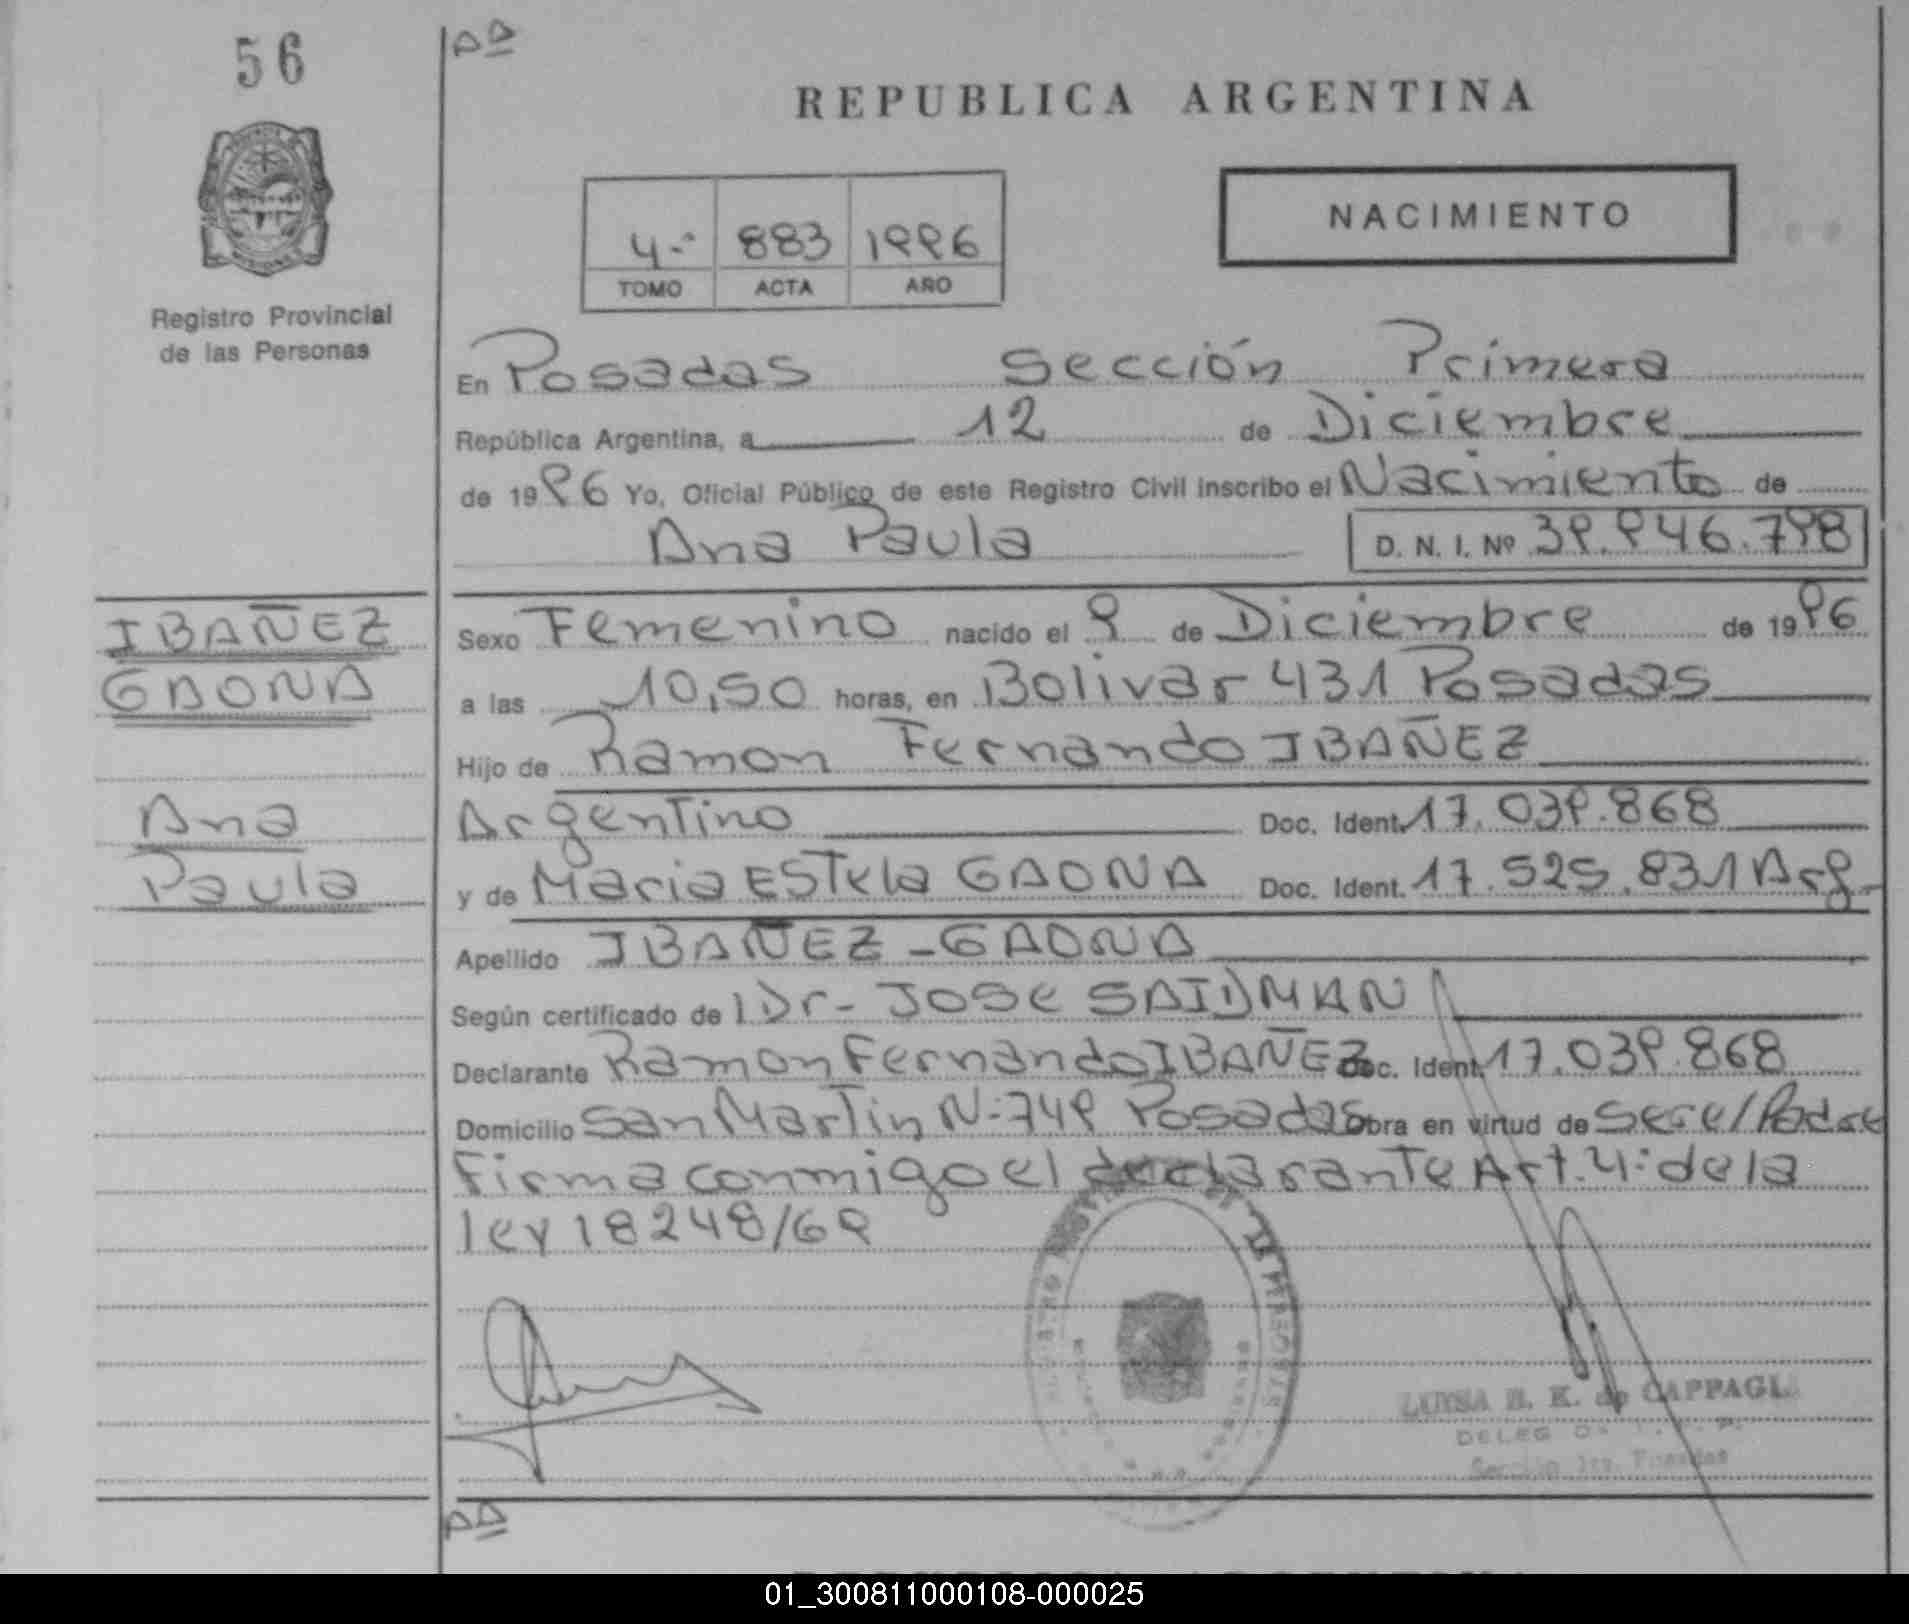 56
REPUBLICA ARGENTINA
NACIMIENTO
4.º 883 1996
TOMO ACTA AÑO
Registro Provincial
de las Personas
En Posadas Sección Primera
República Argentina, a 12 de Diciembre
de 1996 Yo, Oficial Público de este Registro Civil inscribo el Nacimiento de
Ana Paula D. N. I. Nº 39.946.798
IBAÑEZ
GAONA
Ana
Paula
Sexo Femenino nacido el 9 de Diciembre de 1996
a las 10,50 horas, en Bolivar 431 Posadas
Hijo de Ramon Fernando IBAÑEZ
Argentino Doc. Ident. 17.039.868
y de Maria EStela GAONA Doc. Ident. 17.525.831 Arg.
Apellido IBAÑEZ - GAONA
Según certificado del Dr- JOSE SAIDMAN
Declarante Ramon Fernando IBAÑEZ Doc. Ident. 17.039.868
Domicilio San Martin N-749 Posadas Obra en virtud de Ser el Padre
Firma conmigo el declarante Art. 4: de la
ley 18248/69
LUISA B. K. de CAPPAGLI
Sección 1ra. Posadas
01_300811000108-000025